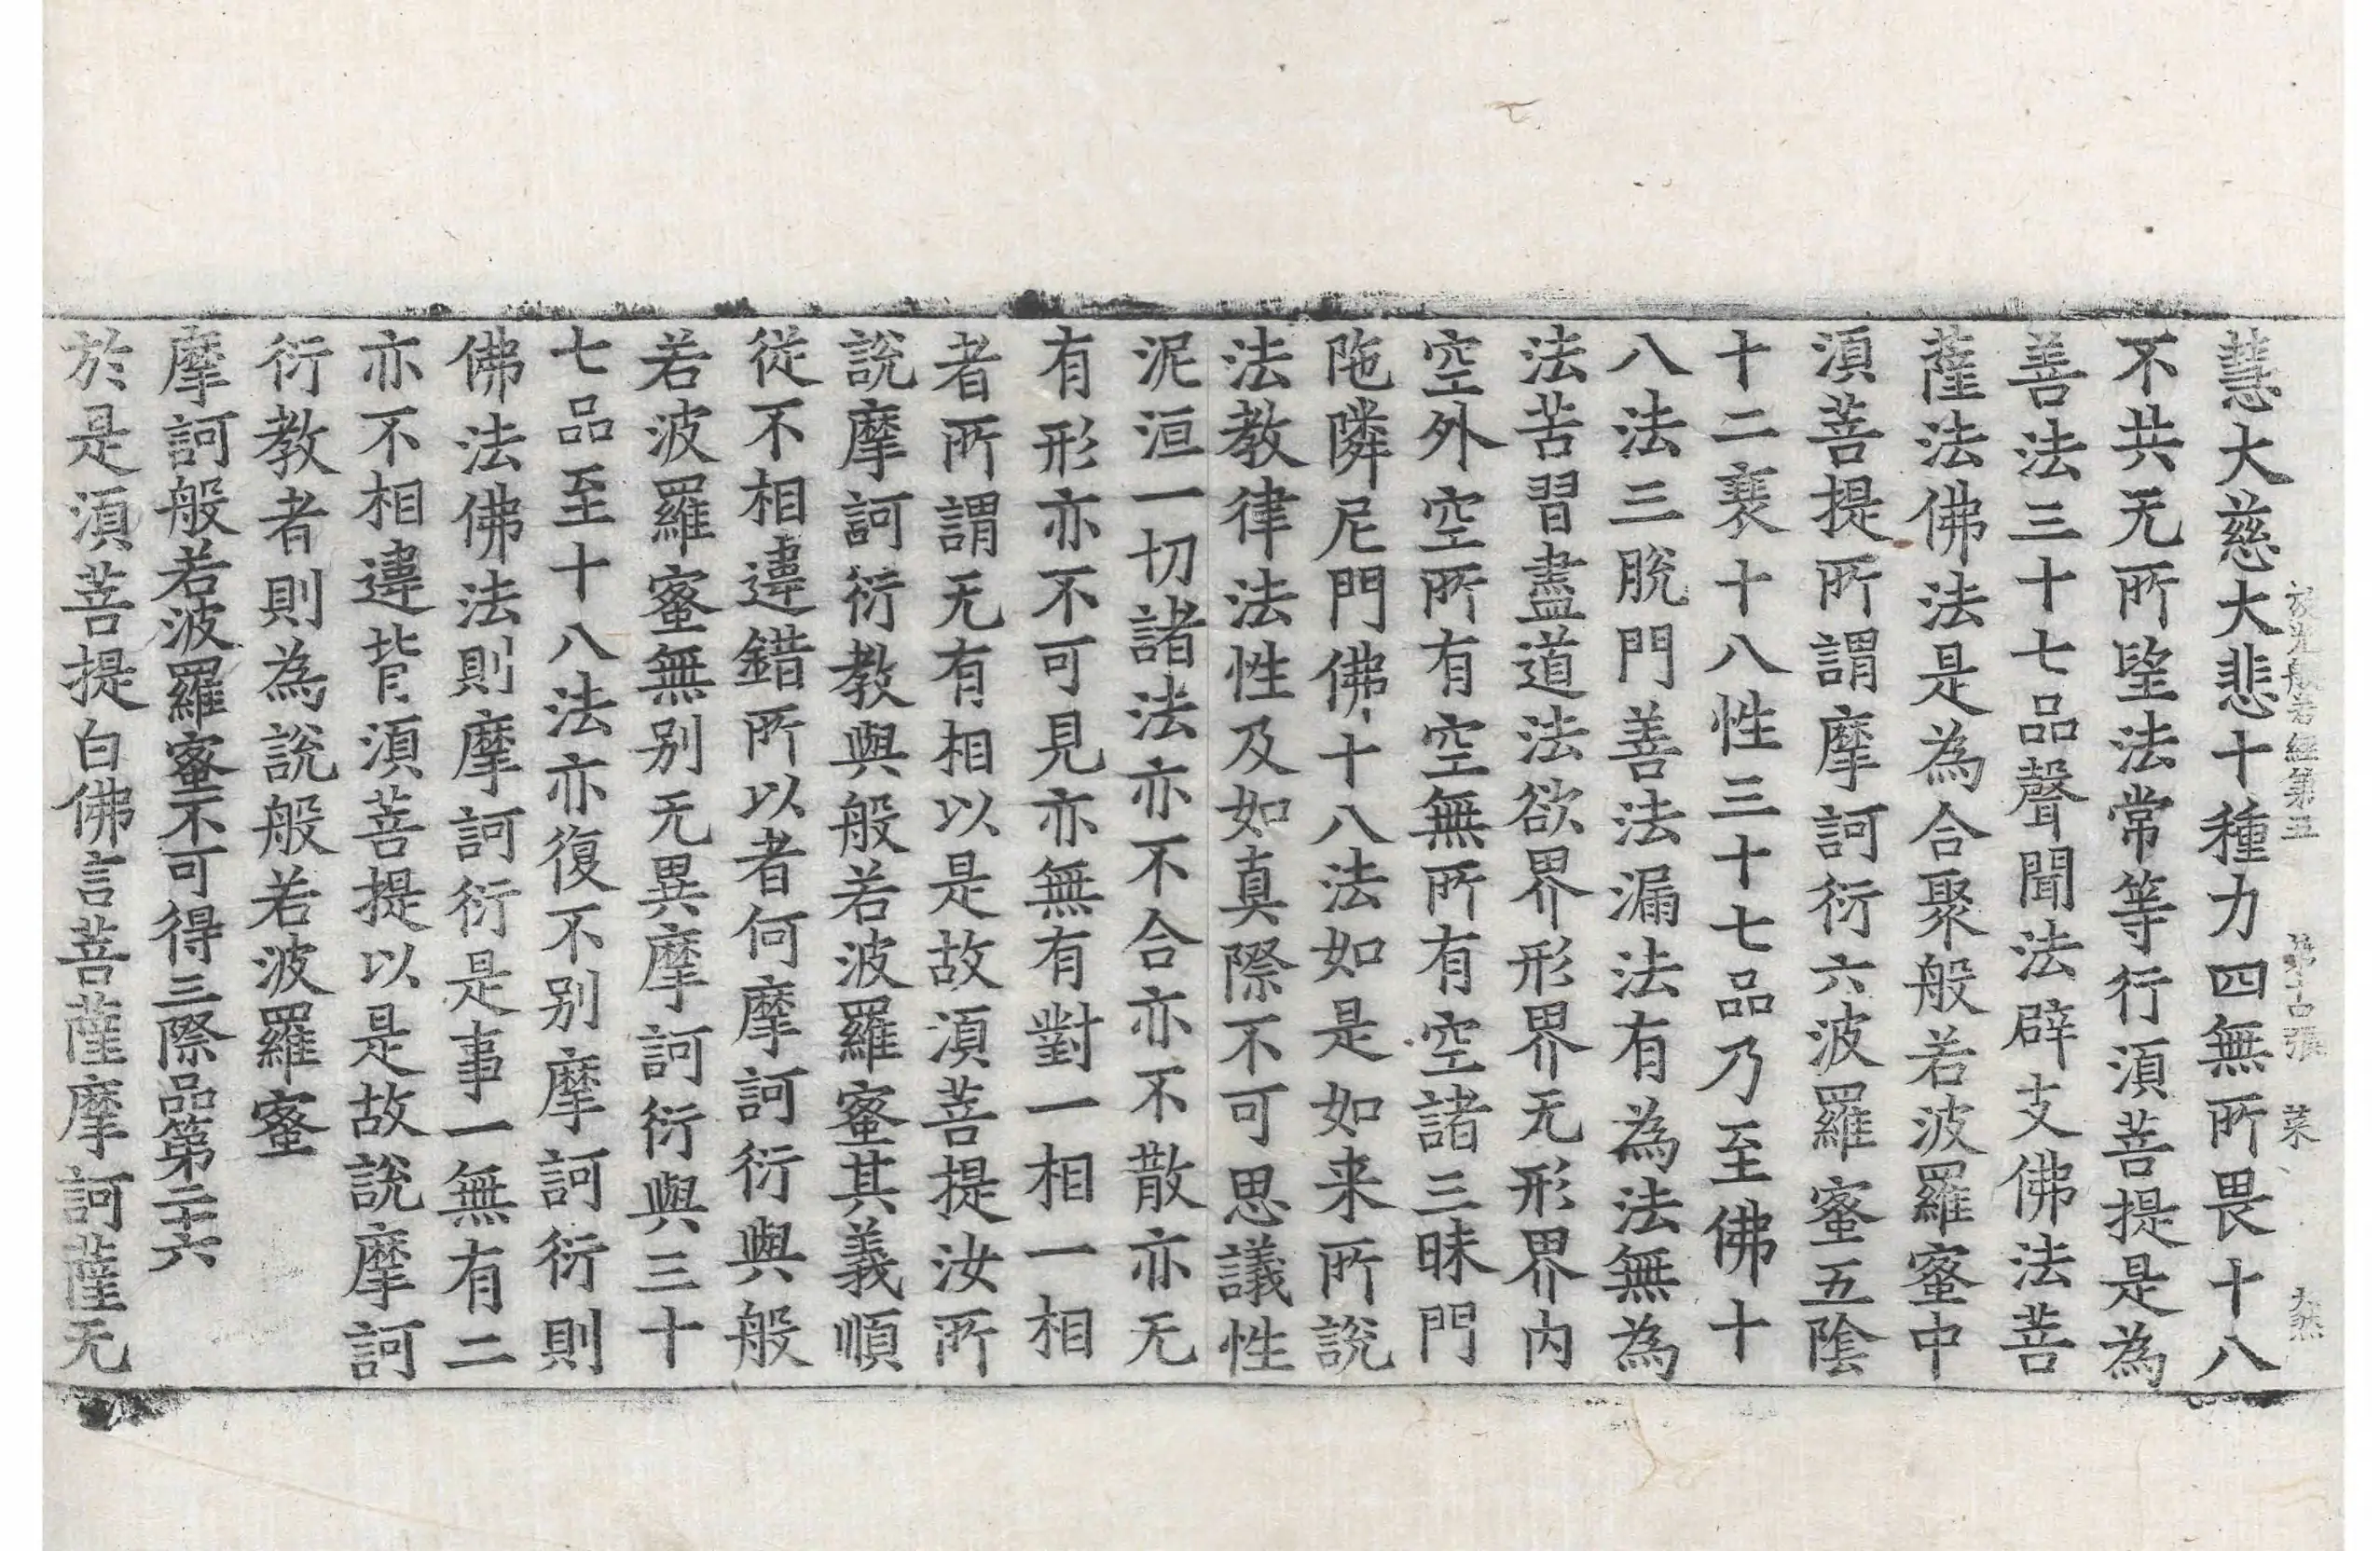 放光般若經第五 第十四張 菜
慧大慈大悲十種力四無所畏十八
不共无所㒵法常等行湏菩提是為
善法三十七品聲聞法辟支佛法菩
薩法佛法是為合聚般若波羅蜜中
湏菩提所謂摩訶衍六波羅蜜五陰
十二衰十八性三十七品乃至佛十
八法三脫門善法漏法有為法無為
法苦習盡道法欲界形界无形界內
空外空所有空無所有空諸三昧門
陁隣尼門佛十八法如是如来所說
法教律法性及如真際不可思議性
泥洹一切諸法亦不合亦不散亦无
有形亦不可見亦無有對一相一相
者所謂无有相以是故湏菩提汝所
說摩訶衍教與般若波羅蜜其義順
從不相違錯所以者何摩訶衍與般
若波羅蜜無别无異摩訶衍與三十
七品至十八法亦復不别摩訶衍則
佛法佛法則摩訶衍是事一無有二
亦不相違背湏菩提以是故說摩訶
衍教者則為說般若波羅蜜
摩訶般若波羅蜜不可得三際品第二十六
於是湏菩提白佛言菩薩摩訶薩无